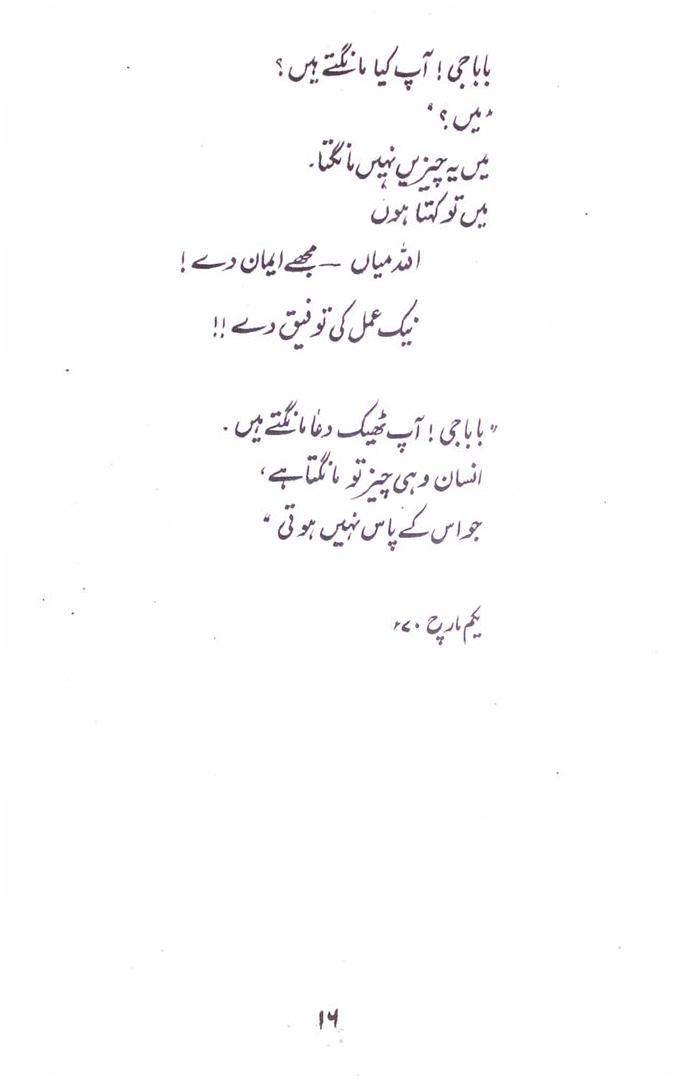 باباجی! آپ کیا مانگتے ہیں؟
"میں؟"
میں یہ چیزیں نہیں مانگتا۔
میں تو کہتا ہوں
اللہ میاں — مجھے ایمان دے!
نیک عمل کی توفیق دے!!
"باباجی! آپ ٹھیک دعا مانگتے ہیں۔
انسان وہی چیز تو مانگتا ہے،
جو اس کے پاس نہیں ہوتی"
یکم مارچ ۷۰ء
۱۶